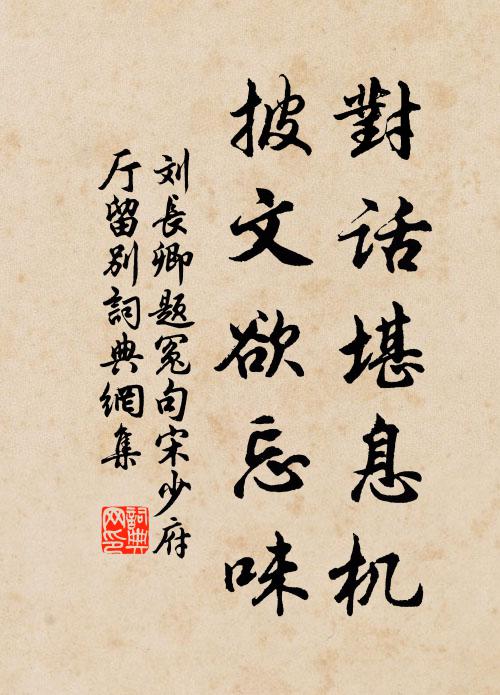 對话堪息机
披文欲忘味
刘長卿题冤句宋少府
厅留别詞典網集
詞典
网印